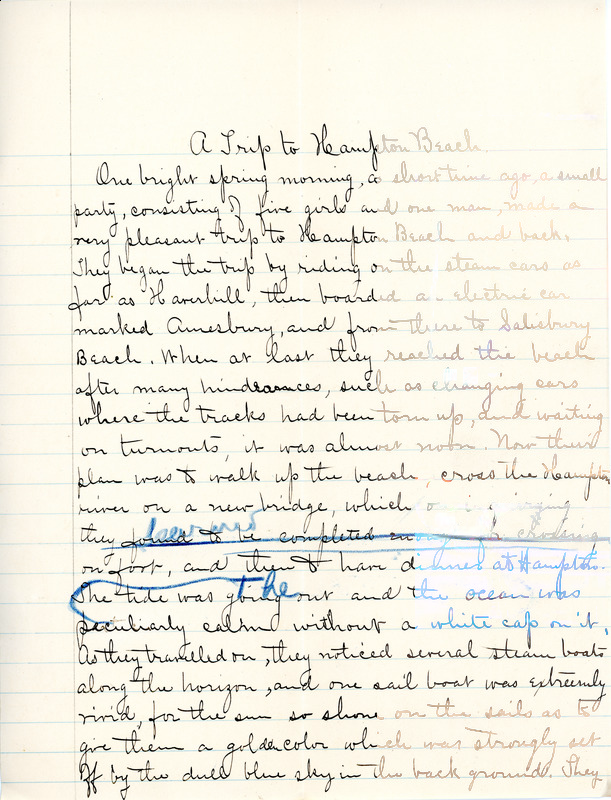 A Trip to Hampton Beach.
One bright spring morning, a short time ago, a small
party, consisting of five girls and one man, made a
very pleasant trip to Hampton Beach and back.
They began the trip by riding on the steam cars as
far as Haverhill, then boarded a electric car
marked Amesbury, and from there to Salisbury
Beach. When at last they reached the beach
after many hinderances, such as changing cars
where the tracks had been torn up, and waiting
on turnouts, it was almost noon. Now their
plan was to walk up the beach, cross the Hampton
river on a new bridge, which on inquiring
learned
they found to be completed enough for crossing
on foot, and then to have dinner at Hampton.
The
The tide was going out and the ocean was
peculiarly calm without a white cap on it.
As they travelled on, they noticed several steam boats
along the horizon, and one sail boat was extremely
vivid, for the sun so shone on the sails as to
give them a golden color which was strongly set
off by the dull blue sky in the back ground. They